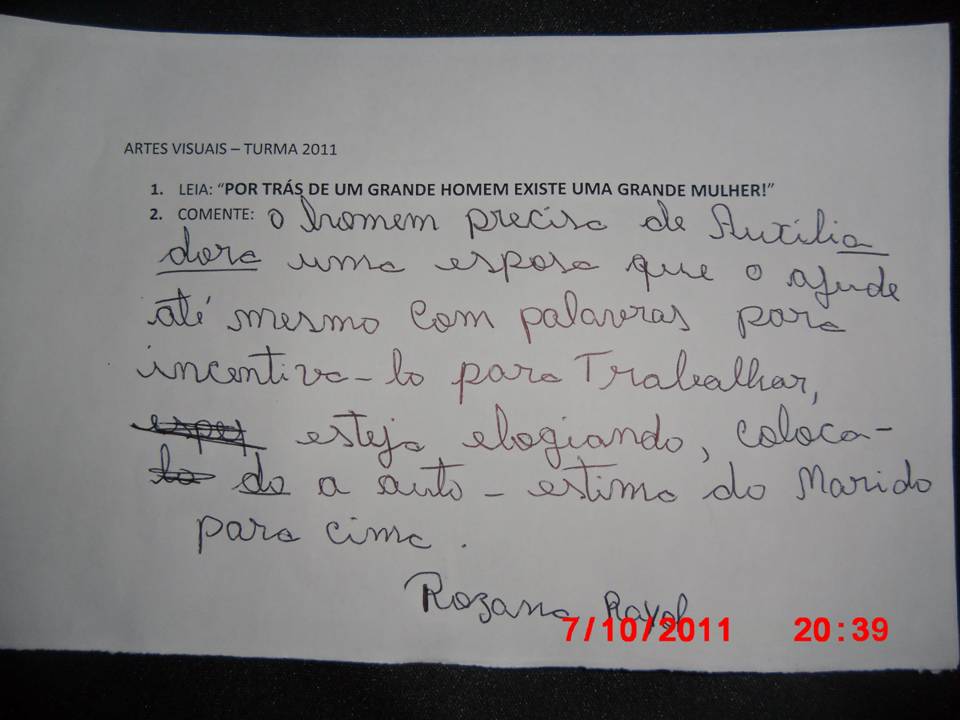 ARTES VISUAIS – TURMA 2011
1. LEIA: “POR TRÁS DE UM GRANDE HOMEM EXISTE UMA GRANDE MULHER!”
2. COMENTE: o homem precisa de Auxilia
dora uma esposa que o ajude
até mesmo com palavras para
incentiva-lo para Trabalhar,
esteja elogiando, coloca-
do a auto-estima do Marido
para cima.
Rozana Rayol
7/10/2011 20:39